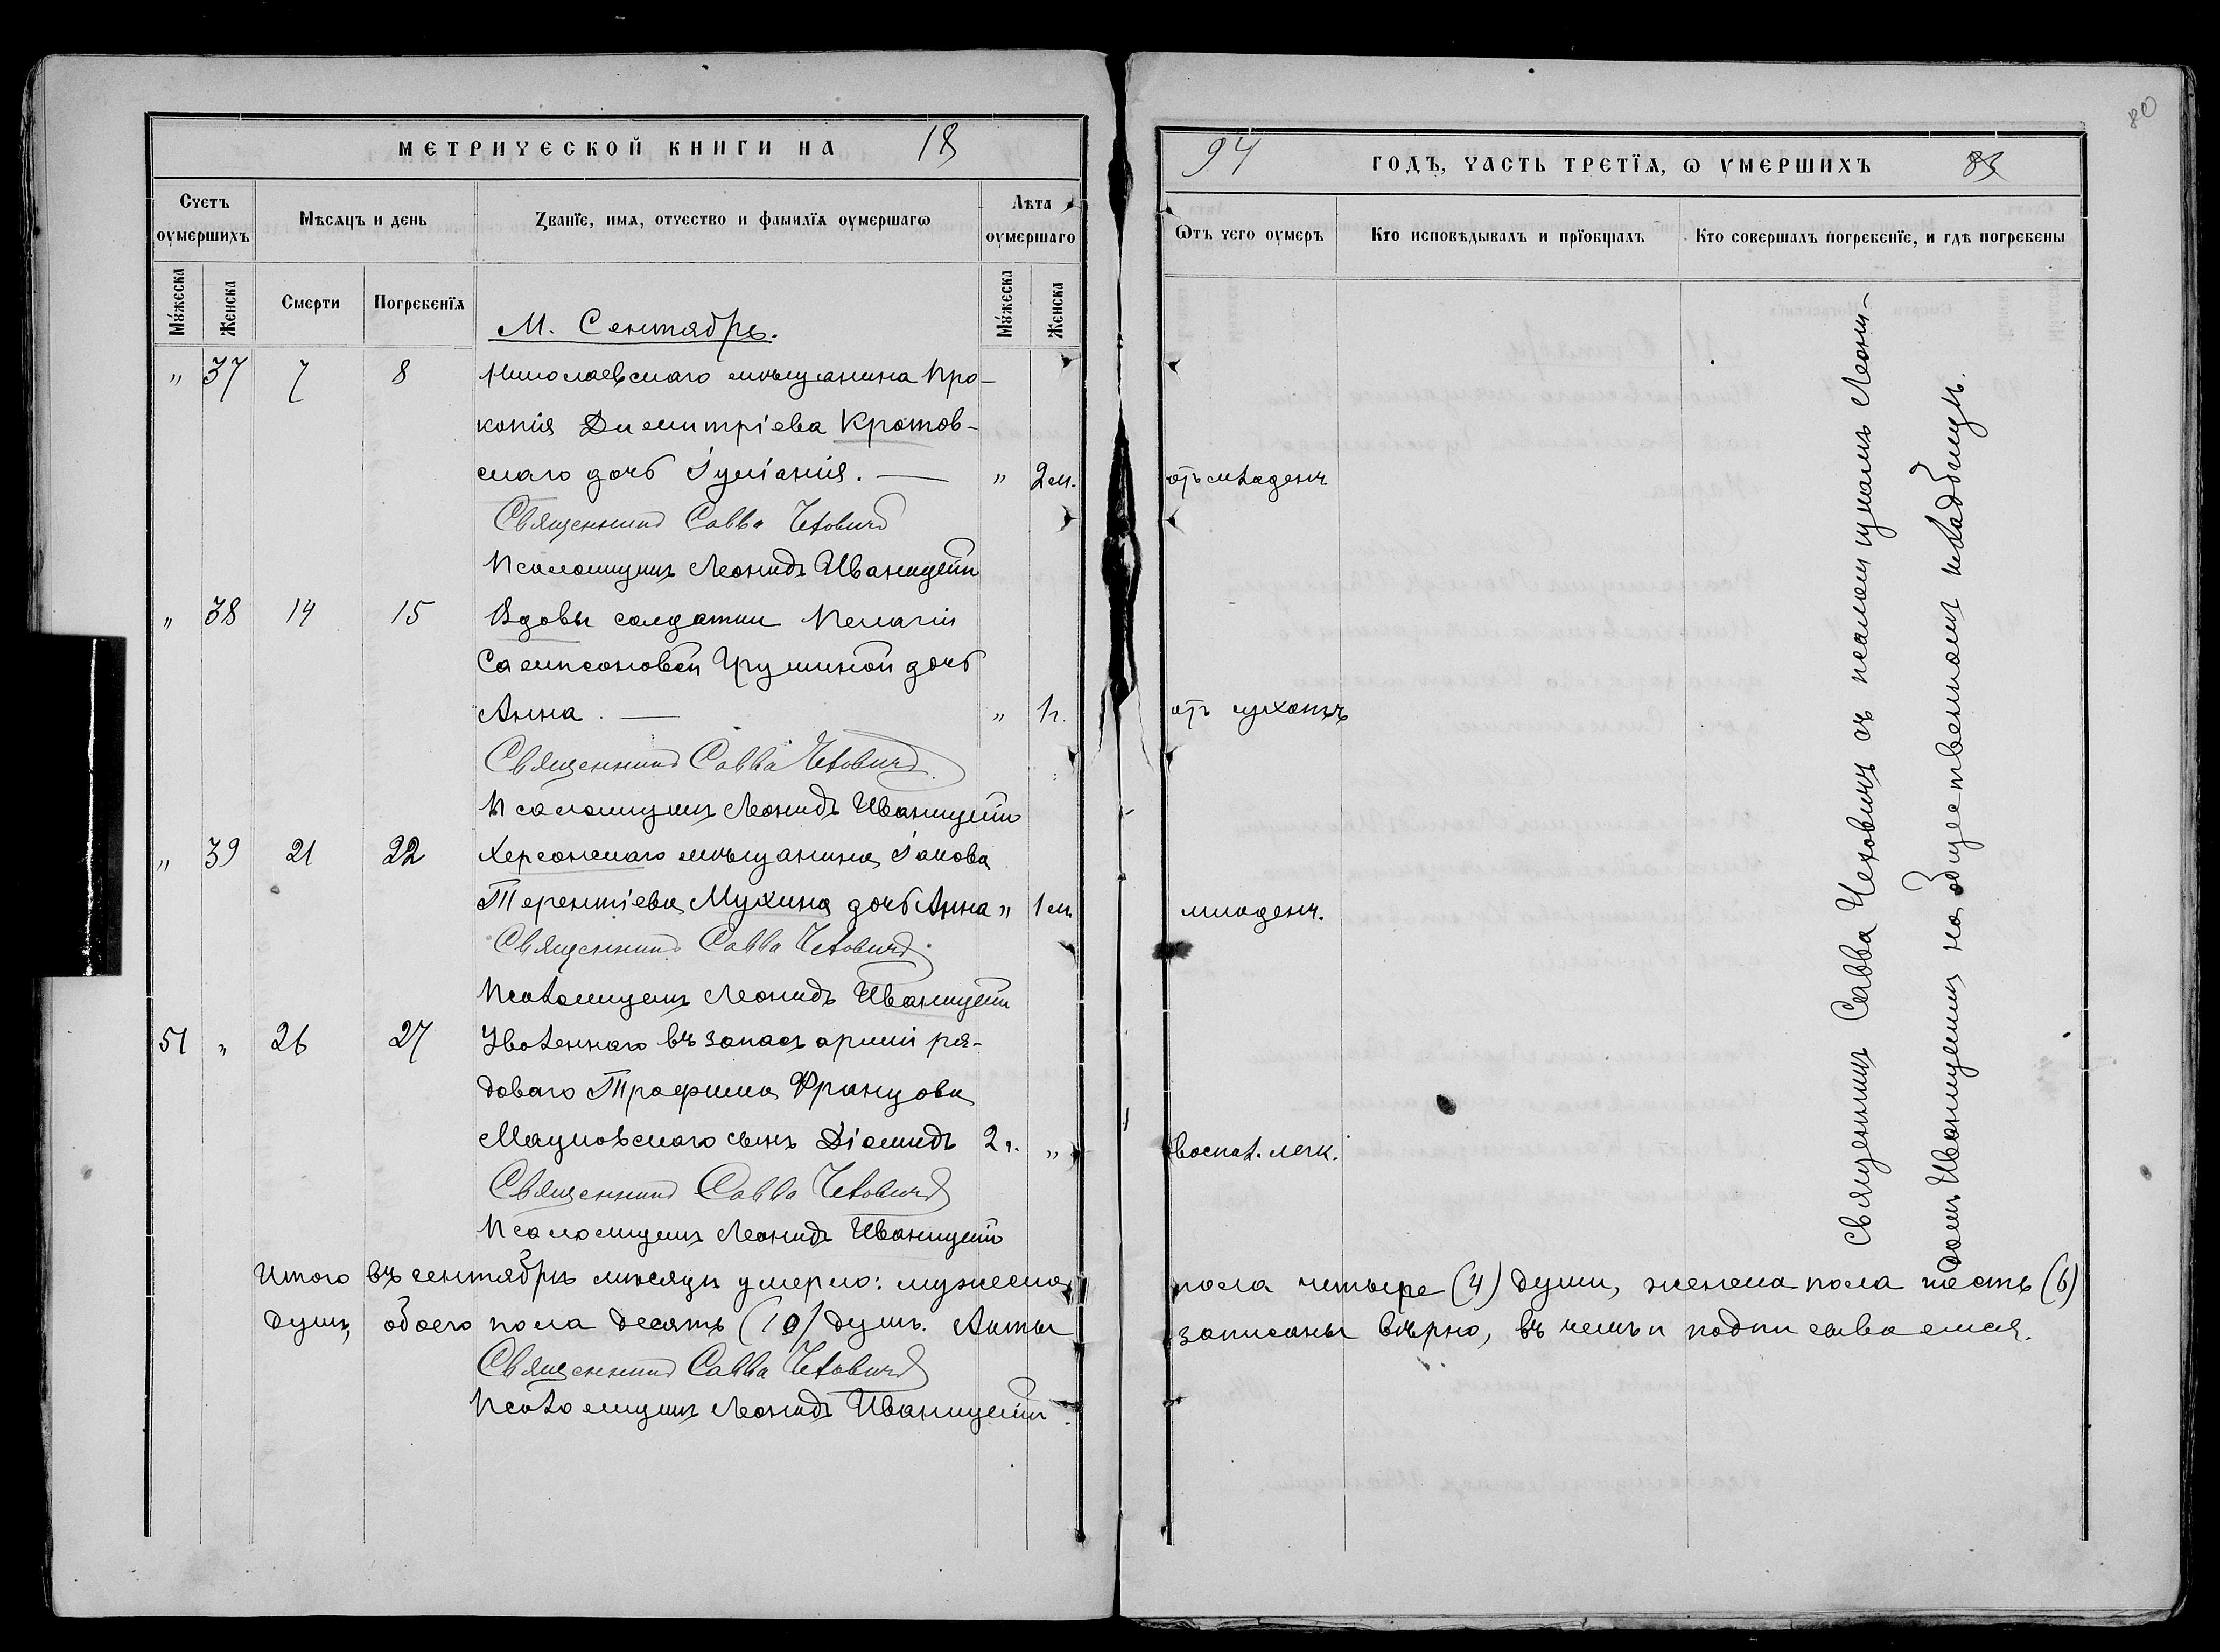 МЕТРИЧЕСКОЙ КНИГИ НА 18
Счетъ оумершихъ
Мѣсяцъ и день
Званїе, имя, отчество и фамилїя оумершагѡ
Лѣта оумершаго
Мꙋжеска
Женска
Смерти
Погребенїя
Мꙋжеска
Женска
М. Сентябрь.
" 37 7 8 Николаевскаго мѣщанина Про-
копія Димитріева Кротов-
скаго дочь Іуліанія. — " 2 м.
Священникъ Савва Чеховичъ
Псаломщикъ Леонидъ Иваницкій
" 38 14 15 Вдовы солдатки Пелагіи
Сампсоновой дочь
Анна. — " 1 г.
Священникъ Савва Чеховичъ
Псаломщикъ Леонидъ Иваницкій
" 39 21 22 Херсонскаго мѣщанина Іакова
Терентіева Мухина дочь Анна " 1 м
Священникъ Савва Чеховичъ
Псаломщикъ Леонидъ Иваницкій
51 " 26 27 Уволеннаго въ запасъ арміи ря-
доваго Трофима Францова
Мацковскаго сынъ Діомидъ 2 г. "
Священникъ Савва Чеховичъ
Псаломщикъ Леонидъ Иваницкій
Итого въ сентябрѣ мѣсяцѣ умерло: мужеска
душъ, обоего пола десять (10) душъ. Акты
Священникъ Савва Чеховичъ
Псаломщикъ Леонидъ Иваницкій
80
94 ГОДЪ, ЧАСТЬ ТРЕТЇЯ, Ѡ УМЕРШИХЪ 83
Ѿтъ чего оумеръ
Кто исповѣдывалъ и прїобщалъ
Кто совершалъ погребенїе, и гдѣ погребены
отъ младенч
отъ сухотъ
младенч.
воспал. легк.
Священникъ Савва Чеховичъ съ псаломщикомъ Леони-
домъ Иваницкимъ на общественномъ кладбищѣ.
пола четыре (4) души, женска пола шесть (6)
записаны вѣрно, въ чемъ и подписываемся.